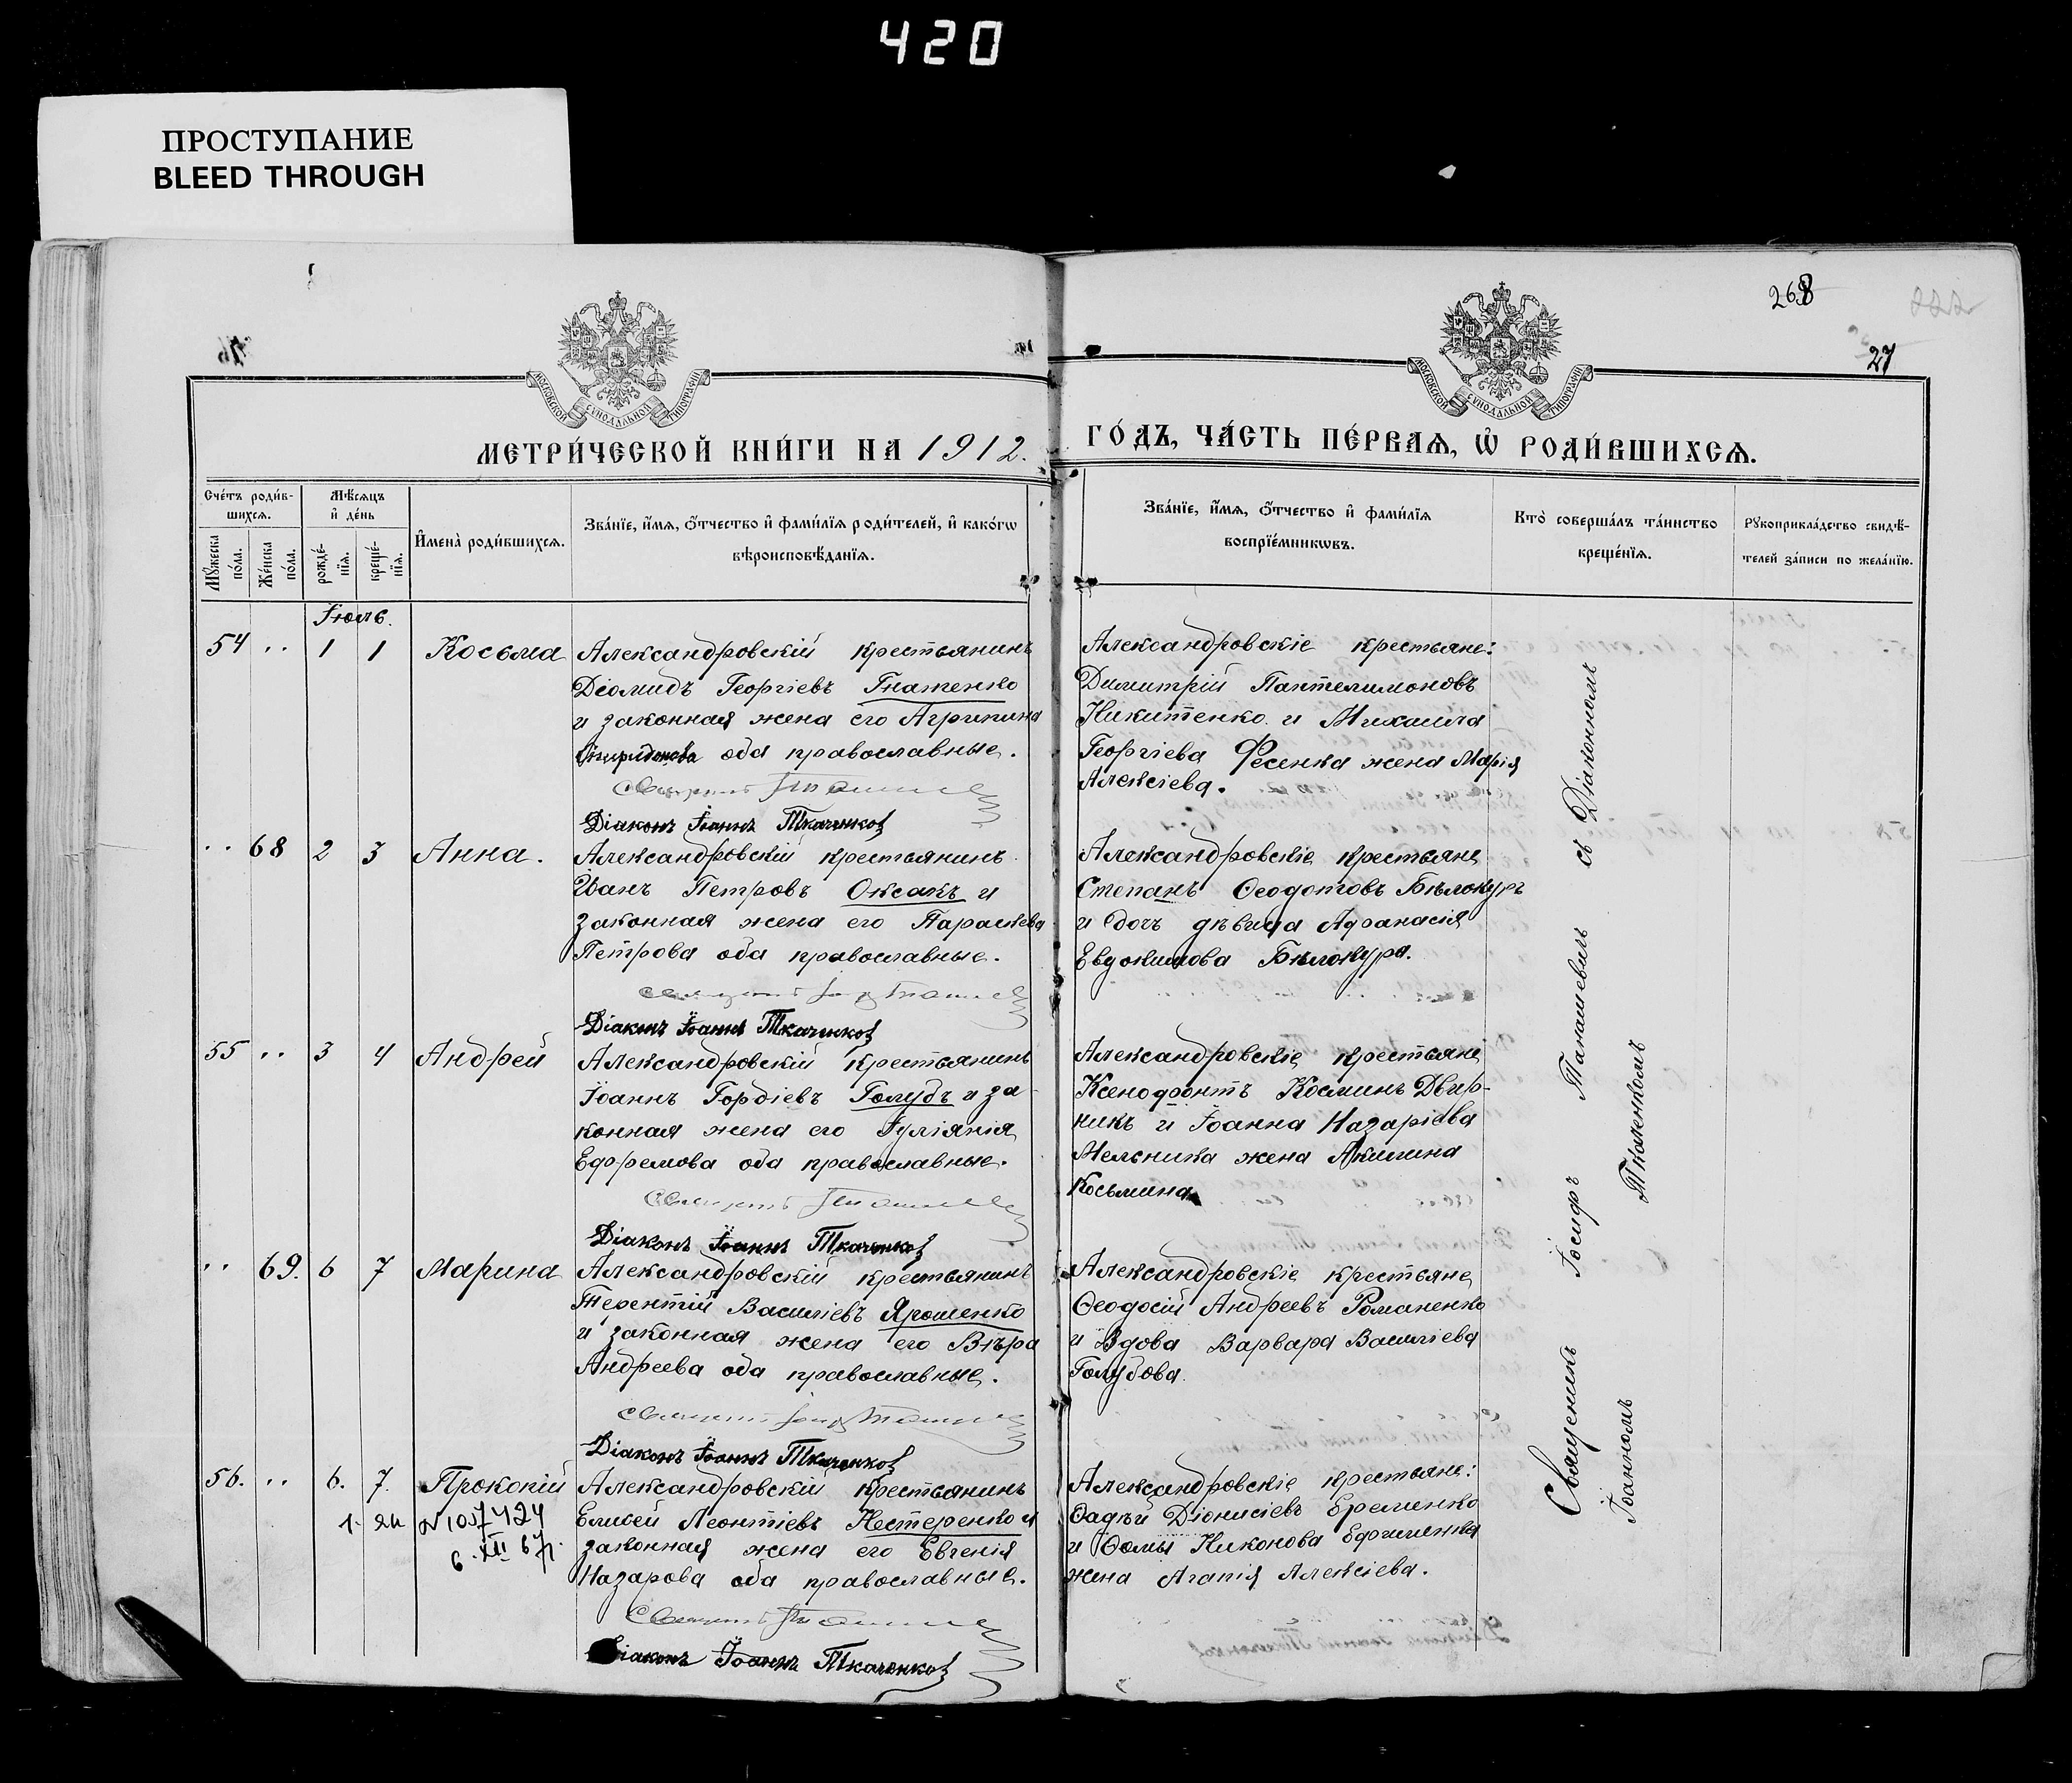 420
ПРОСТУПАНИЕ
BLEED THROUGH
268
222
27
МОСКОВСКОЙ СѴНОДАЛЬНОЙ ТИПОГРАФІИ
МОСКОВСКОЙ СѴНОДАЛЬНОЙ ТИПОГРАФІИ
МЕТРИ́ЧЕСКОЙ КНИ́ГИ НА 1912.
ГО́ДЪ, ЧА́СТЬ ПЕ́РВАѦ, Ѡ҆ РОДИ́ВШИХСѦ.
Сче́тъ роди́в-
шихсѧ.
Мꙋ́жеска по́ла.
Же́нска по́ла.
Мѣ́сѧцъ
и҆ де́нь
рожде́-
нїѧ.
креще́-
нїѧ.
И҆мена̀ роди́вшихсѧ.
Зва́нїе, и҆́мѧ, ѻ҆́тчество и҆ фами́лїѧ роди́телей, и҆ како́гѡ
вѣроисповѣ́данїѧ.
Зва́нїе, и҆́мѧ, ѻ҆́тчество и҆ фами́лїѧ
воспрїе́мникѡвъ.
Кто̀ соверша́лъ та́инство
креще́нїѧ.
Рꙋкоприкла́дство свидѣ́-
телей за́писи по жела́нїю.
Іюль.
54 .. 1 1 Косьма
Александровскій крестьянинъ
Діомидъ Георгіевъ Гнатенко
и законная жена его Агрипина
Спиридонова оба православные.
Діаконъ Іоаннъ Ткаченко
Александровскіе крестьяне:
Димитрій Пантелимоновъ
Никитенко и Михаила
Георгіева Фесенка жена Марія
Алексіева.
.. 68 2 3 Анна.
Александровскій крестьянинъ
Иванъ Петровъ Оксакъ и
законная жена его Параскева
Петрова оба православные.
Діаконъ Іоаннъ Ткаченко
Александровскіе крестьяне
Степанъ Ѳеодотовъ Бѣлокуръ
и дочь дѣвица Афанасія
Евдокимова Бѣлокура.
55 .. 3 4 Андрей
Александровскій крестьянинъ
Іоаннъ Гордіевъ Голубъ и за-
конная жена его Іуліянія
Ефремова оба православные.
Діаконъ Іоаннъ Ткаченко
Александровскіе крестьяне
Ксенофонтъ Косминъ Двир-
никъ и Іоанна Назаріева
Мельника жена Акилина
Косьмина
.. 69. 6 7 Марина
Александровскій крестьянинъ
Терентій Василіевъ Ярошенко
и законная жена его Вѣра
Андреева оба православные.
Діаконъ Іоаннъ Ткаченко
Александровскіе крестьяне
Ѳеодосій Андреевъ Романенко
и вдова Варвара Василіева
Голубова.
56. .. 6. 7. Прокопій
№1057424
6.XII 67г.
Александровскій крестьянинъ
Елисей Леонтіевъ Нестеренко и
законная жена его Евгенія
Назарова оба православные.
Діаконъ Іоаннъ Ткаченко
Александровскіе крестьяне:
Ѳадѣй Діонисіевъ Еременко
и Ѳомы Никонова Ефименка
жена Агапія Алексіева.
Священникъ Іосифъ Танашевичъ съ Діакономъ
Іоанномъ Ткаченкомъ